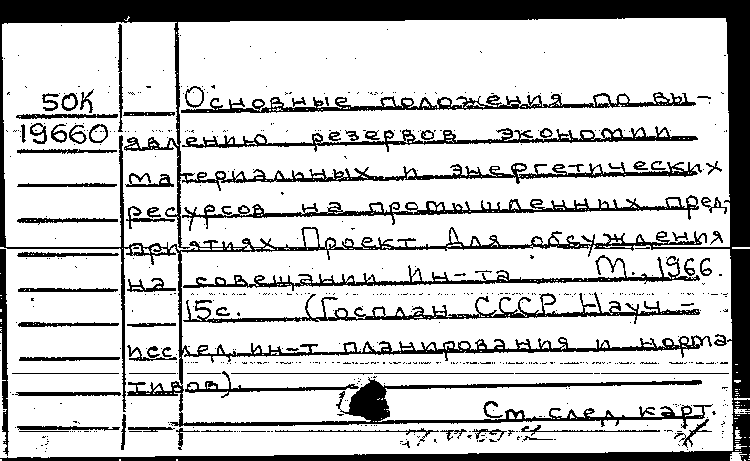 50К
19660
Основные положения по вы-
явлению резервов экономии
материальных и энергетических
ресурсов на промышленных пред-
приятиях. Проект. Для обсуждения
на совещании Ин-та М., 1966.
15с. (Госплан СССР. Науч -
исслед. ин-т планирования и норма-
тивов).
См. след. карт.